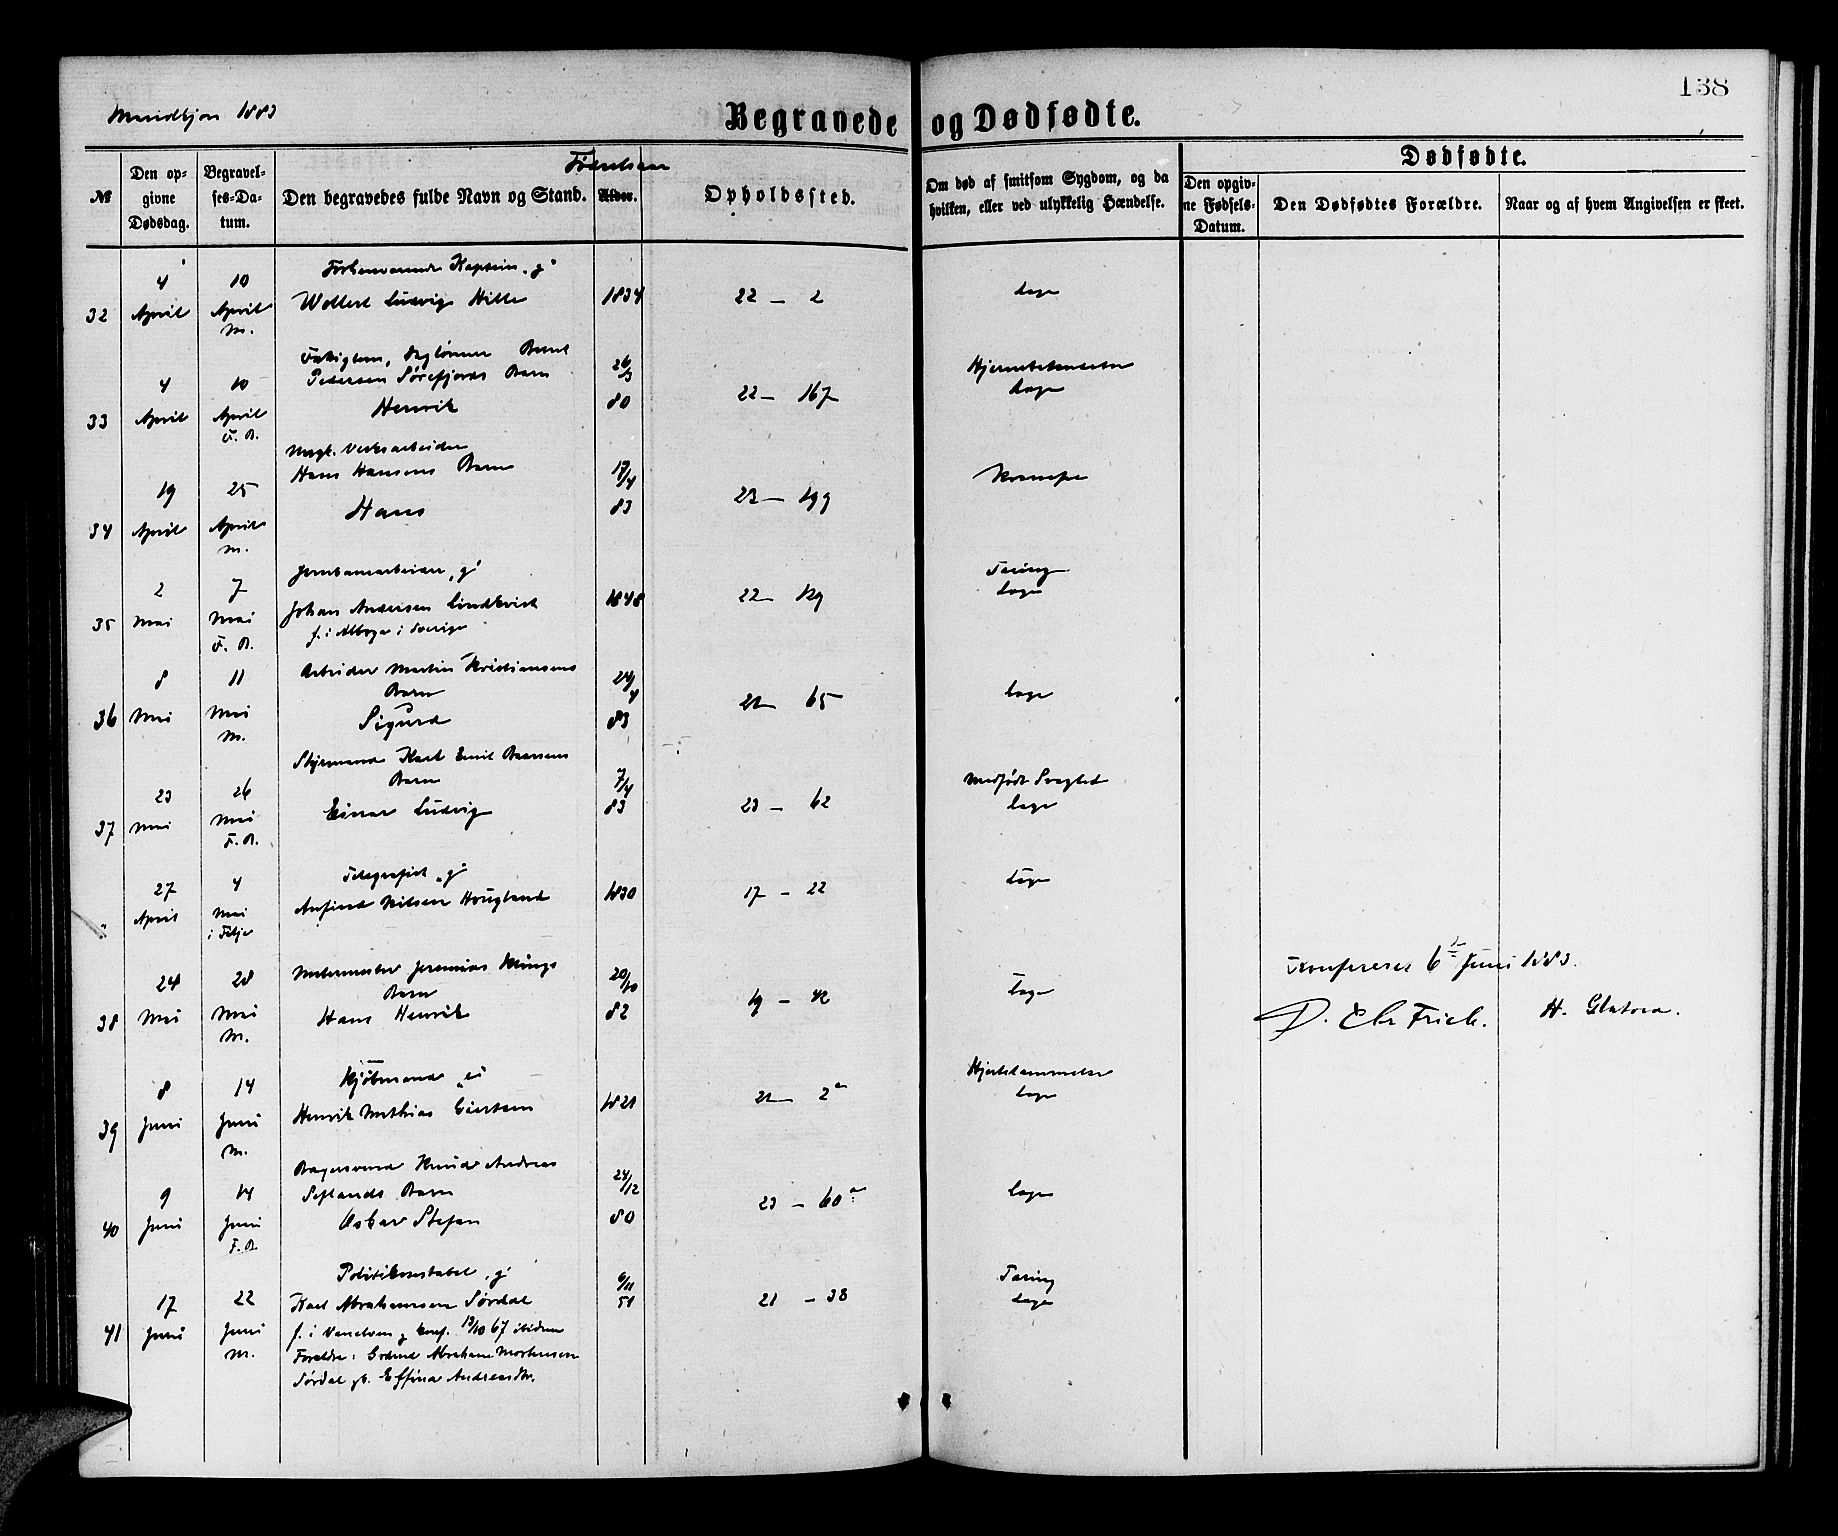 138
Mandkjøn 1883
Begravede og Dødfødte.
№
Den opgivne Dødsdag.
Begravelses-Datum.
Den begravedes fulde Navn og Stand.
Fødselsaar
Alder.
Opholdssted.
Om død af smitsom Sygdom, og da hvilken, eller ved ulykkelig Hændelse.
Dødfødte.
Den opgivne Fødsels-Datum.
Den Dødfødtes Forældre.
Naar og af hvem Angivelsen er skeet.
32
4 April
10 April M.
Forhenværende Kaptein, g
Wollert Ludvig Hille
1834
22 — 2
Læge
33
4 April
10 April F. B.
Fattiglem, Daglønner Bernt
Pedersen Sørefjords Barn
Henrik
26/3 80
22 — 167
Læge
34
19 April
25 April M.
Hans Hansens Barn
Hans
17/4 83
23 — 199
Krampe
35
2 Mai
7 Mai F. B.
Jernbanearbeider, g
Johan Andersen Lindkvist
f. i Alboga i Sverige
1848
22 — 129
Tæring
Læge
36
8 Mai
11 Mai M.
Arbeider Martin Kristiansens
Barn
Sigurd
24/4 83
21 — 65
Læge
37
23 Mai
26 Mai F. B.
Styrmand Karl Emil Baarsens
Barn
Einar Ludvig
7/4 83
23 — 62
Medfødt Svaghed
Læge
"
27 April
4 Mai i Fetje
Telegrafist, g
Anfind Nilsen Hougland
1830
17 — 22
Læge
38
24 Mai
28 Mai M.
Murermester Jeremias Krings
Barn
Hans Henrik
20/10 82
19 — 42
Læge
Konfereret 6te Juni 1883.
P. Chr Frich.
39
8 Juni
14 Juni M.
Kjøbmand, ei
Henrik Mathias Giertsen
1821
21 — 2a
Læge
40
9 Juni
14 Juni F. B.
Bagersvend Knud Andreas
Seglands Barn
Oskar Stefan
24/12 80
23 — 60a
Læge
41
17 Juni
22 Juni M.
Politikonstabel, g
Karl Abrahamsen Sørdal
f. i Vanelven g konf. 13/10 67 ibidem
Forældre: Grdmd Abraham Mortensen
Sørdal og Effina Andreasdtr.
6/11 51
21 — 38
Tæring
Læge